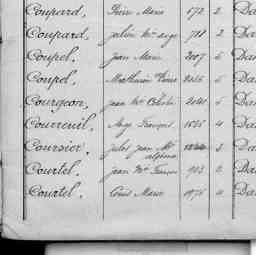 Coupard, Pierre Marie 672 2 Da
Coupard, julien Mie ange 781 2 Da
Coupel, Jean Marie 2007 5 Da
Coupel, Mathurin 2036 5 Da
Courgeon, jean Mie 2041 5 Da
Courreuil, Ange François 1525 4 Da
Coursier, jules jean Mie alphonse 3 Da
Courtel, jean Mie François 903 2 Da
Courtel, Louis Marie 1975 4 Da